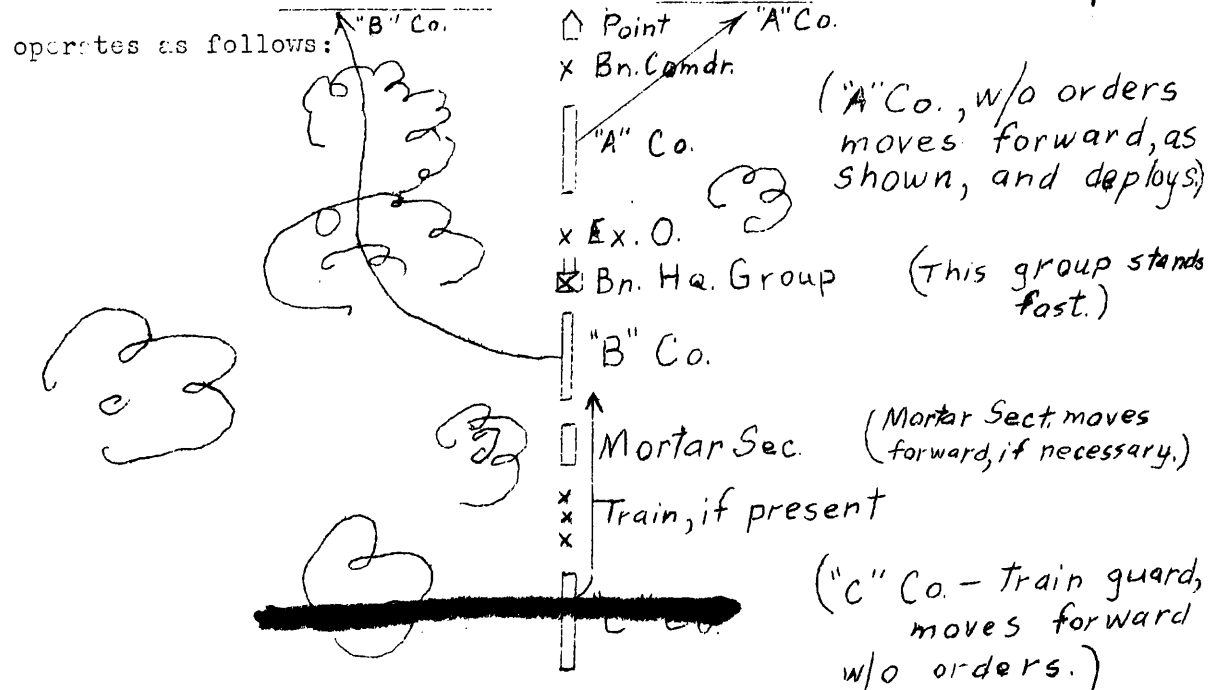 "B" Co.
Point
"A" Co.
operates as follows:
Bn. Comdr.
("A" Co., w/o orders
moves forward, as
shown, and deploys)
"A" Co.
Ex. O.
Bn. Hq. Group
(This group stands
fast.)
"B" Co.
Mortar Sec.
(Mortar Sect. moves
forward, if necessary.)
Train, if present
("C" Co. - Train guard,
moves forward
w/o orders.)